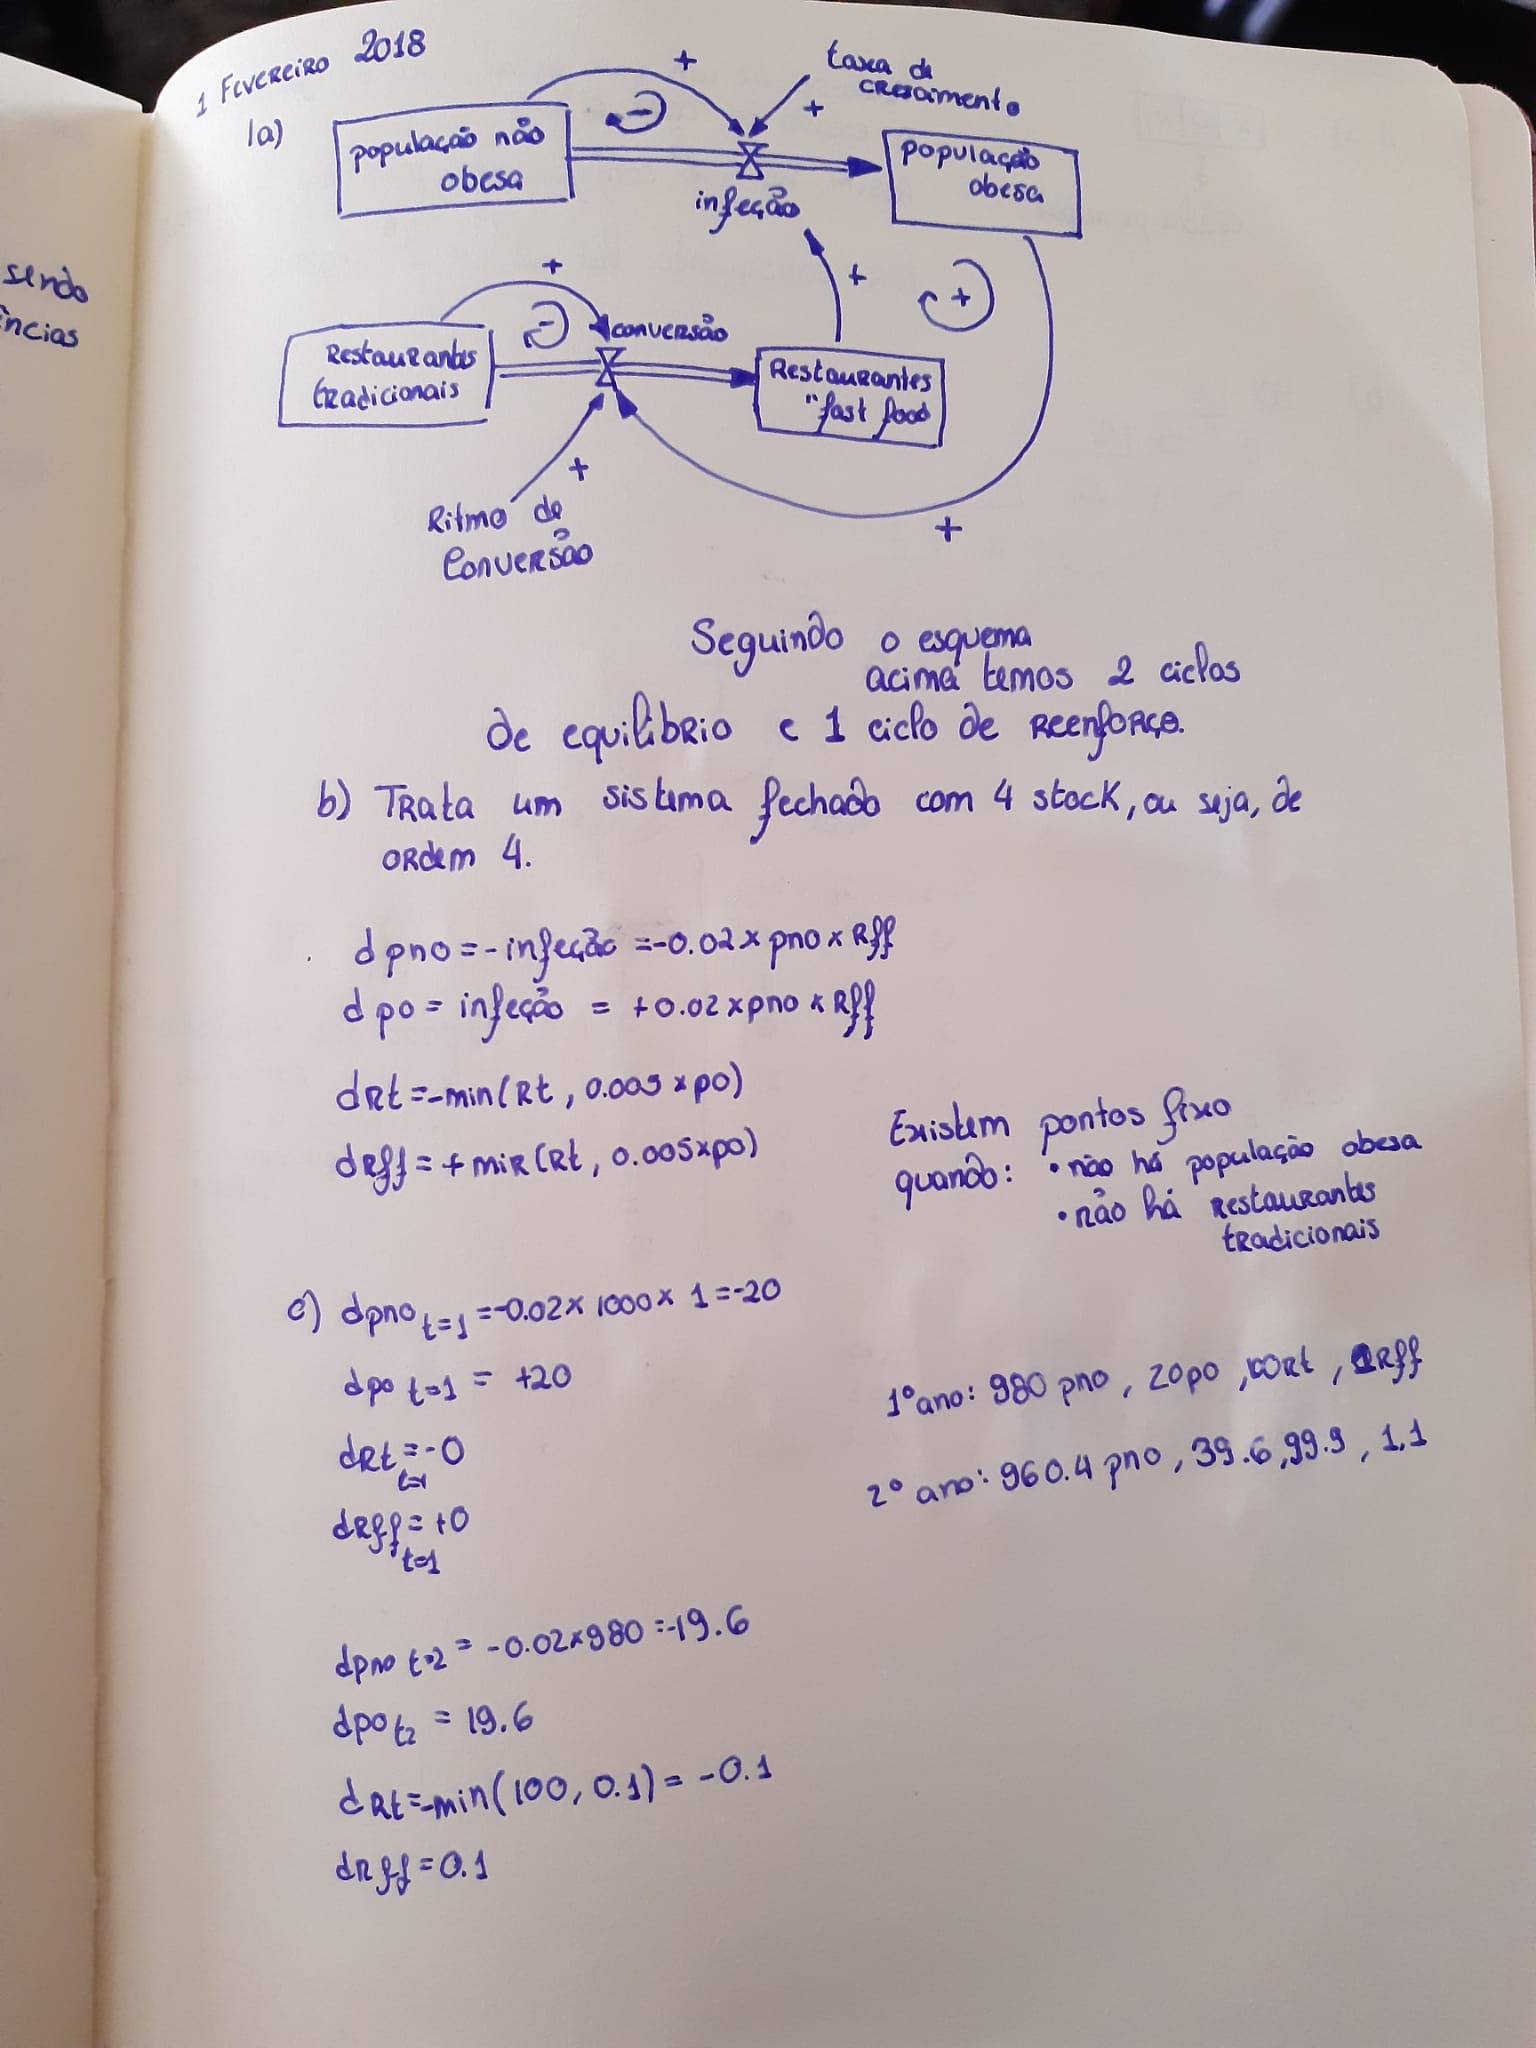 sendo
ências
1 Fevereiro 2018
1a)
+
taxa de
crescimento
+
população não
obesa
-
população
obesa
infeção
+
+
+
-
conversão
Restaurantes
tradicionais
Restaurantes
"fast food
+
Ritmo de
Conversão
+
Seguindo o esquema
acima temos 2 ciclos
de equilibrio e 1 ciclo de reenforço.
b) Trata um sistema fechado com 4 stock, ou seja, de
ordem 4.
d pno = - infeção = -0.02 x pno x Rff
d po = infeção = +0.02 x pno x Rff
dRt = -min(Rt, 0.005 x po)
dRff = + min(Rt, 0.005xpo)
Existem pontos fixo
quando: • não há população obesa
• não há restaurantes
tradicionais
c) dpno t=1 = -0.02 x 1000 x 1 = -20
dpo t=1 = +20
dRt t=1 = -0
dRff t=1 = +0
1º ano: 980 pno, 20po, 100Rt, 1Rff
2º ano: 960.4 pno, 39.6, 99.9, 1.1
dpno t=2 = -0.02x980 = -19.6
dpo t2 = 19.6
dRt = -min(100, 0.1) = -0.1
dRff = 0.1